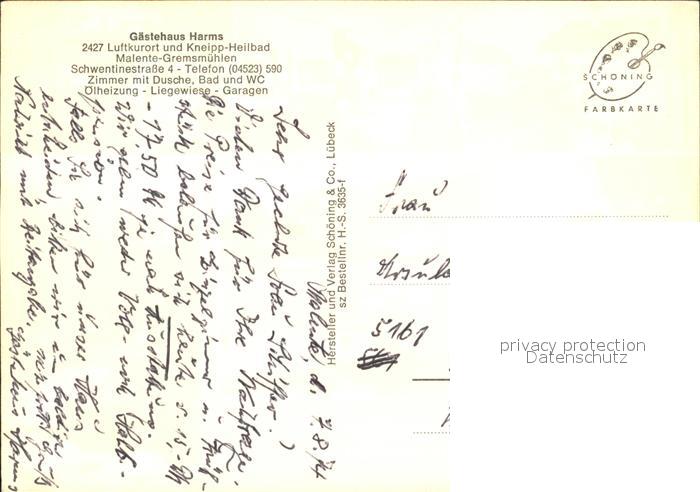 Gästehaus Harms
2427 Luftkurort und Kneipp-Heilbad
Malente-Gremsmühlen
Schwentinestraße 4 - Telefon (04523) 590
Zimmer mit Dusche, Bad und WC
Ölheizung - Liegewiese - Garagen
SCHÖNING
FARBKARTE
Hersteller und Verlag Schöning & Co., Lübeck
sz Bestellnr. H.-S. 3635-f
Malente, d. 7.8.74
Sehr geehrte Frau
Vielen Dank für Ihre
Die Preise für Einzelzimmer m. Früh-
stück belaufen sich heute v. 15,-
- 17,50 je nach Ausstattung.
Wir geben weder Voll- noch Halb-
pension.
Falls Sie sich für unser Haus
entscheiden, bitten wir um baldige
Nachricht mit Zeitangabe.
Gästehaus Harms
Frau
5161
privacy protection
Datenschutz